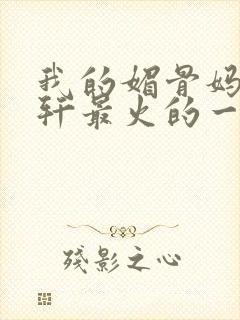 我的媚骨妈
轩最火的一
残影之心